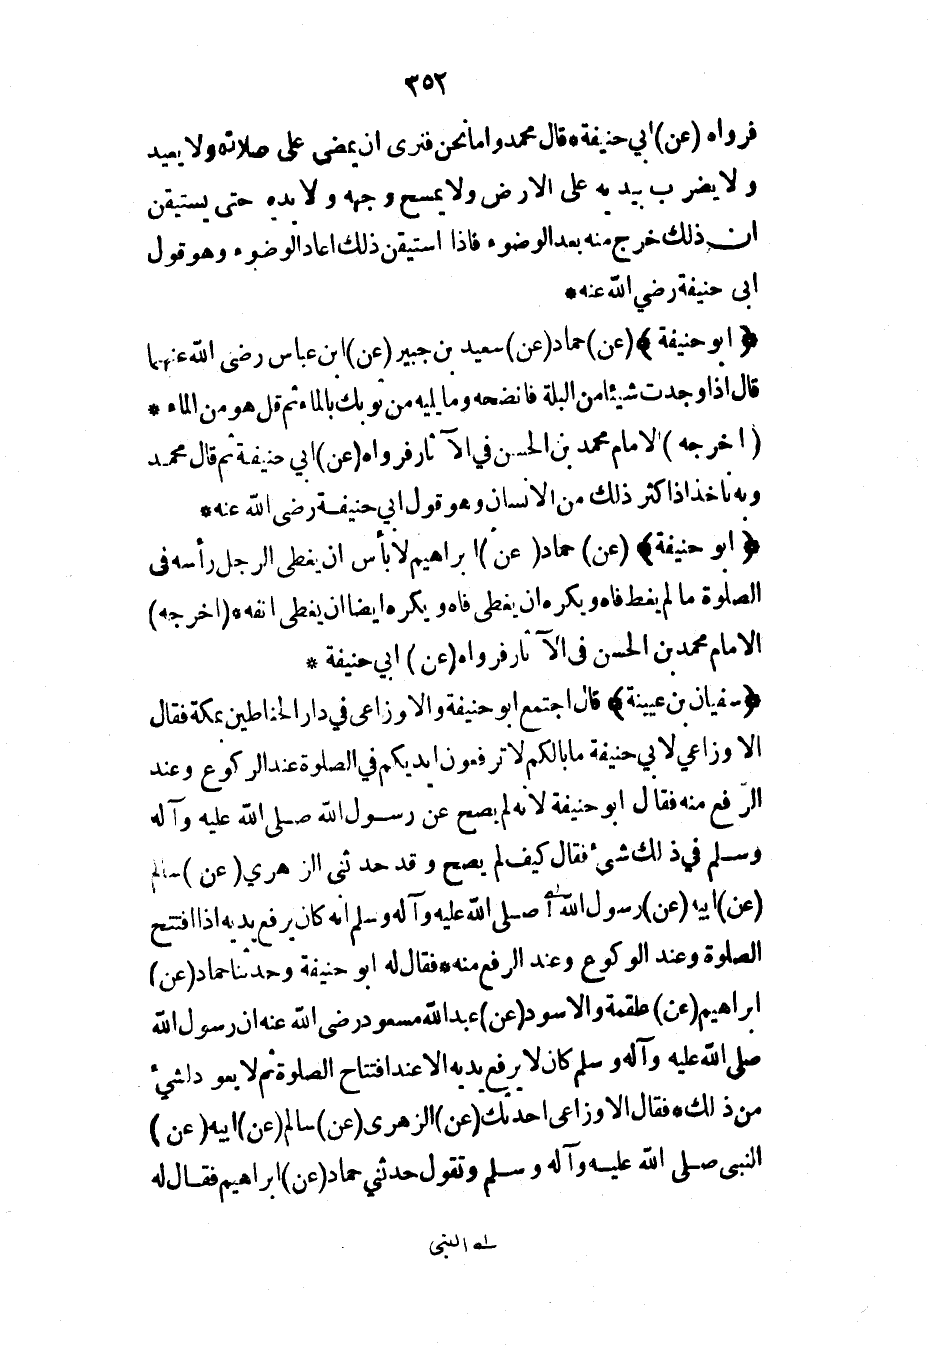 ٣٥٢
فرواه (عن) ابي حنيفة * قال محمد و اما نحن فنرى ان يمضي على صلاته ولا يعيد
و لا يضرب بيديه على الارض ولا يمسح وجهه و لا يده حتى يستيقن
ان ذلك خرج منه بعد الوضوء فاذا استيقن ذلك اعاد الوضوء وهو قول
ابى حنيفة رضي الله عنه *
﴿ ابو حنيفة ﴾ (عن) حماد (عن) سعيد بن جبير (عن) ابن عباس رضى الله عنهما
قال اذا وجدت شيئا من البلة فانضحه وما يليه من ثوبك بالماء ثم قل هو من الماء *
( اخرجه ) الامام محمد بن الحسن في الآثار فرواه (عن) ابي حنيفة ثم قال محمد
وبه ناخذ اذا كثر ذلك من الانسان وهو قول ابي حنيفة رضى الله عنه *
﴿ ابو حنيفة ﴾ (عن) حماد (عن) ابراهيم لا بأس ان يغطى الرجل رأسه فى
الصلوة ما لم يغط فاه ويكره ان يغطى فاه و يكره ايضا ان يغطى انفه * (اخرجه)
الامام محمد بن الحسن فى الآثار فرواه (عن) ابي حنيفة *
﴿ سفيان بن عيينة ﴾ قال اجتمع ابو حنيفة والاوزاعى في دار الحناطين بمكة فقال
الاوزاعي لابي حنيفة ما بالكم لا ترفعون ايديكم في الصلوة عند الركوع وعند
الرّفع منه فقال ابو حنيفة لانه لم يصح عن رسول الله صلى الله عليه وآله
وسلم في ذلك شيء فقال كيف لم يصح و قد حدثنى الزهري (عن) سالم
(عن) ابيه (عن) رسول الله صلى الله عليه وآله وسلم انه كان يرفع يديه اذا افتتح
الصلوة وعند الوكوع وعند الرفع منه * فقال له ابو حنيفة وحدثنا حماد (عن)
ابراهيم (عن) علقمة والاسود (عن) عبد الله مسعود رضى الله عنه ان رسول الله
صلى الله عليه وآله و سلم كان لا يرفع يديه الا عند افتتاح الصلوة ثم لا يعود لشيء
من ذلك * فقال الاوزاعى احدثك (عن) الزهرى (عن) سالم (عن) ابيه (عن)
النبى صلى الله عليه وآله وسلم وتقول حدثني حماد (عن) ابراهيم فقال له
النبى